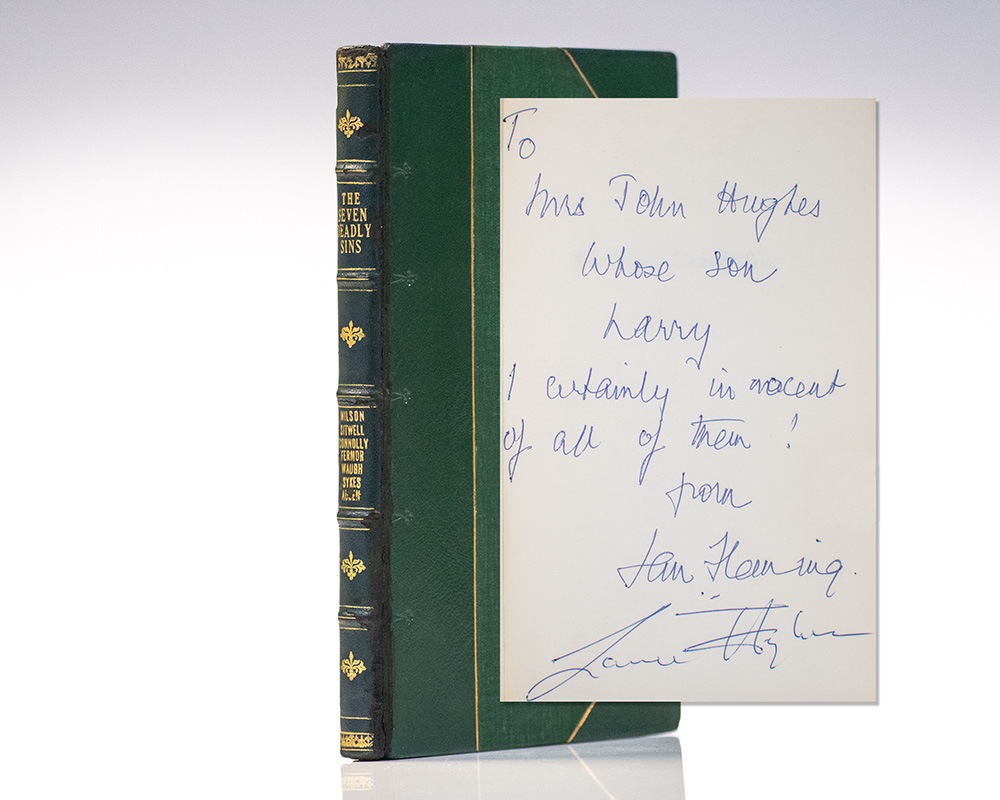 THE
SEVEN
DEADLY
SINS
WILSON
SITWELL
CONNOLLY
FERMOR
WAUGH
SYKES
To
Mrs John Hughes
whose son
Larry
I certainly innocent
of all of them!
from
Ian Fleming.